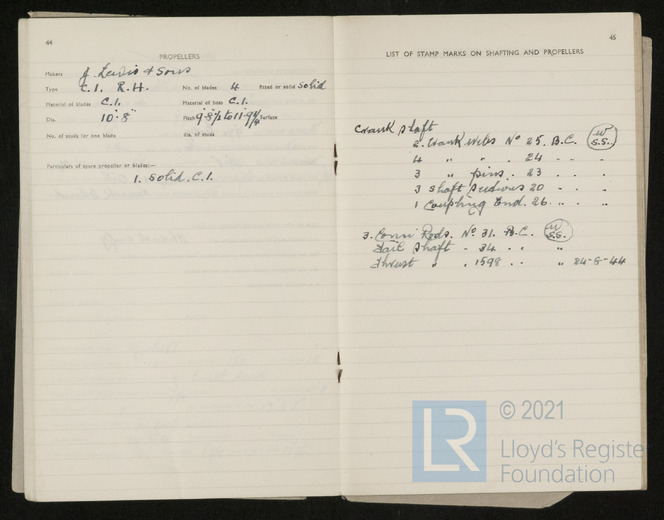 44
PROPELLERS
Makers J. Lewis & Sons
Type C.I. R.H. No. of blades 4 Fixed or solid solid
Material of blades C.I. Material of boss C.I.
Dia. 10'-8" Pitch Surface
No. of studs for one blade dia. of studs
Particulars of spare propeller or blades:—
1. Solid. C.I.
45
LIST OF STAMP MARKS ON SHAFTING AND PROPELLERS
Crank Shaft
2. Crank Webs No 25. B.C. W S.S.
4 " " . 24 . . "
3 " pins . 23 . . "
3 Shaft 20 . . "
1 Coupling End. 26 . . "
3. Conn Rods. No. 31. B.C. W S.S.
Tail Shaft . 34 . . "
Thrust " . 1598 . . " 24-8-44
LR © 2021
Lloyd's Register
Foundation